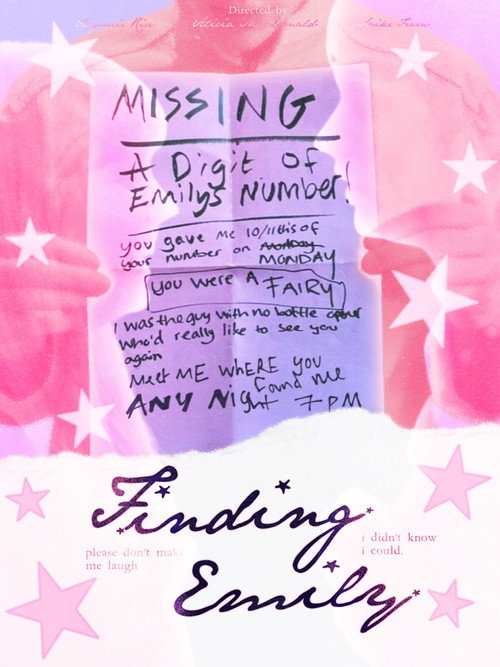 Directed by
MISSING
A Digit Of
Emilys Number!
you gave me 10/11ths of
your number on Monday
MONDAY
you were A FAIRY
I was the guy with no bottle
who'd really like to see you
again
Meet ME WHERE YOU
found me
ANY Night 7PM
Finding
please don't make
me laugh
i didn't know
i could.
Emily